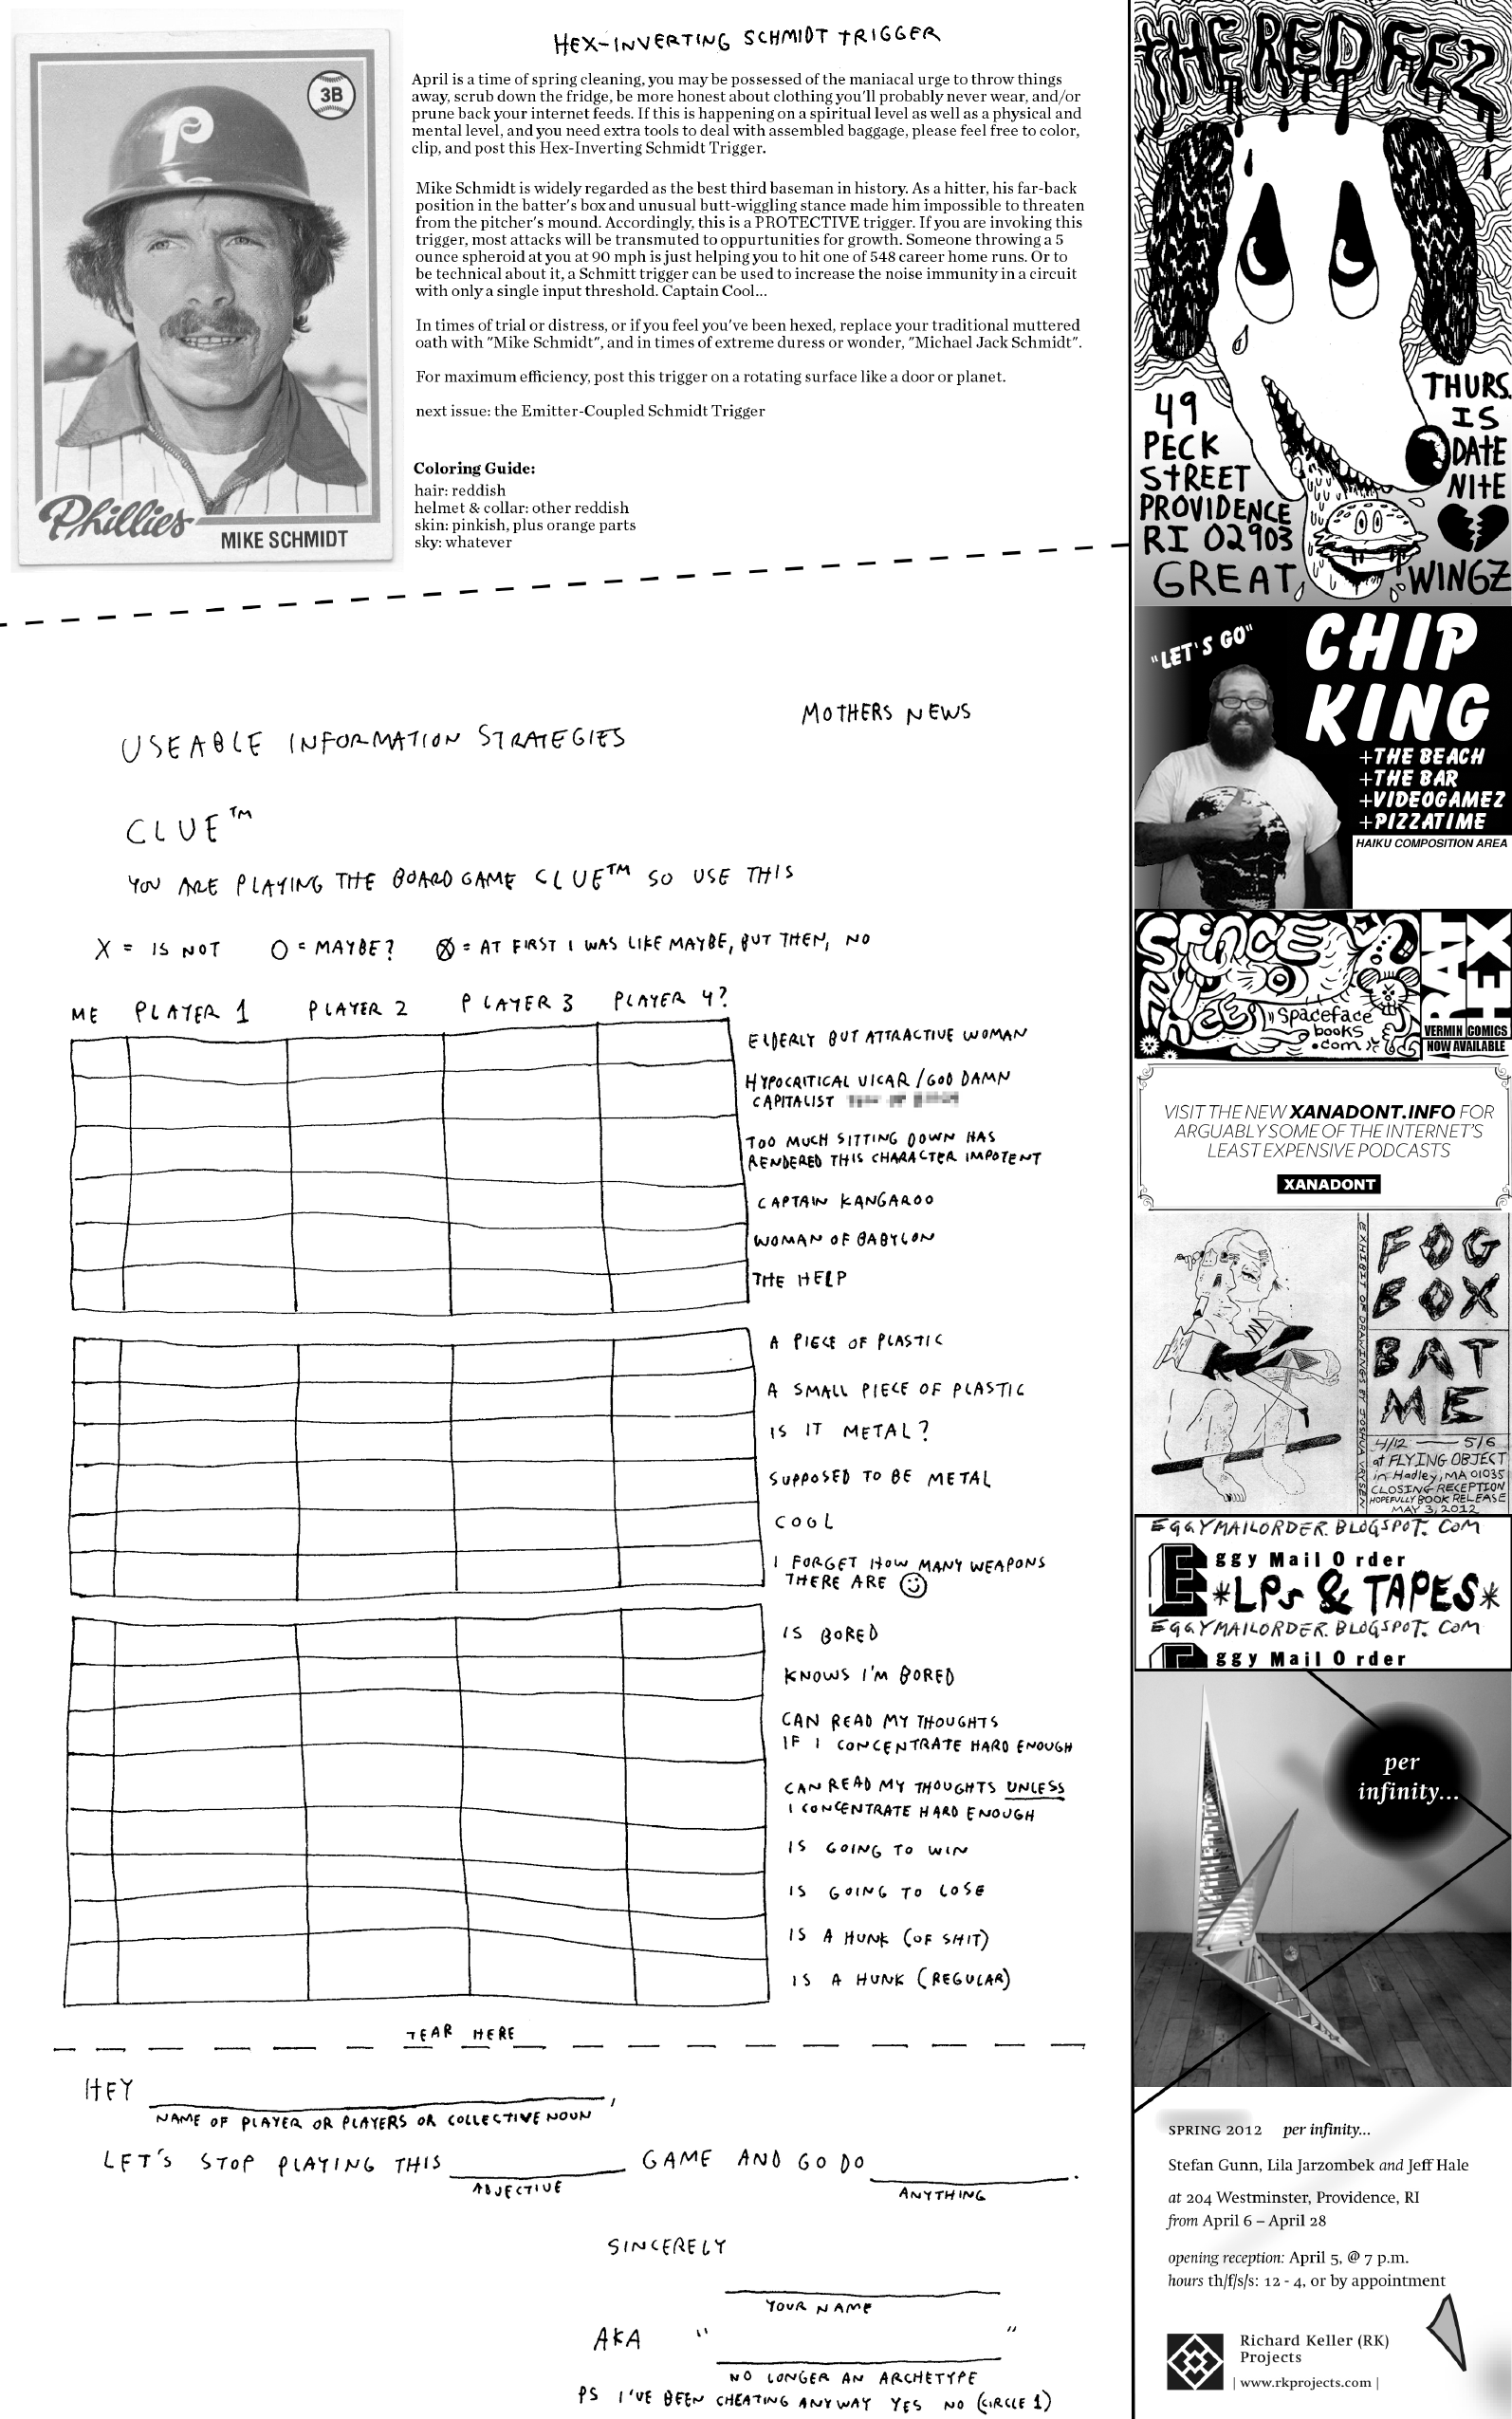 HEX-INVERTING SCHMIDT TRIGGER
April is a time of spring cleaning, you may be possessed of the maniacal urge to throw things
away, scrub down the fridge, be more honest about clothing you'll probably never wear, and/or
prune back your internet feeds. If this is happening on a spiritual level as well as a physical and
mental level, and you need extra tools to deal with assembled baggage, please feel free to color,
clip, and post this Hex-Inverting Schmidt Trigger.
Mike Schmidt is widely regarded as the best third baseman in history. As a hitter, his far-back
position in the batter's box and unusual butt-wiggling stance made him impossible to threaten
from the pitcher's mound. Accordingly, this is a PROTECTIVE trigger. If you are invoking this
trigger, most attacks will be transmuted to oppurtunities for growth. Someone throwing a 5
ounce spheroid at you at 90 mph is just helping you to hit one of 548 career home runs. Or to
be technical about it, a Schmitt trigger can be used to increase the noise immunity in a circuit
with only a single input threshold. Captain Cool...
In times of trial or distress, or if you feel you've been hexed, replace your traditional muttered
oath with "Mike Schmidt", and in times of extreme duress or wonder, "Michael Jack Schmidt".
For maximum efficiency, post this trigger on a rotating surface like a door or planet.
next issue: the Emitter-Coupled Schmidt Trigger
Coloring Guide:
hair: reddish
helmet & collar: other reddish
skin: pinkish, plus orange parts
sky: whatever
3B
P
Phillies
MIKE SCHMIDT
MOTHERS NEWS
USEABLE INFORMATION STRATEGIES
CLUE™
YOU ARE PLAYING THE BOARD GAME CLUE™ SO USE THIS
X = IS NOT O = MAYBE? ⊗ = AT FIRST I WAS LIKE MAYBE, BUT THEN, NO
ME PLAYER 1 PLAYER 2 PLAYER 3 PLAYER 4?
ELDERLY BUT ATTRACTIVE WOMAN
HYPOCRITICAL VICAR / GOD DAMN
CAPITALIST
TOO MUCH SITTING DOWN HAS
RENDERED THIS CHARACTER IMPOTENT
CAPTAIN KANGAROO
WOMAN OF BABYLON
THE HELP
A PIECE OF PLASTIC
A SMALL PIECE OF PLASTIC
IS IT METAL?
SUPPOSED TO BE METAL
COOL
I FORGET HOW MANY WEAPONS
THERE ARE ☺
IS BORED
KNOWS I'M BORED
CAN READ MY THOUGHTS
IF I CONCENTRATE HARD ENOUGH
CAN READ MY THOUGHTS UNLESS
I CONCENTRATE HARD ENOUGH
IS GOING TO WIN
IS GOING TO LOSE
IS A HUNK (OF SHIT)
IS A HUNK (REGULAR)
TEAR HERE
HEY ,
NAME OF PLAYER OR PLAYERS OR COLLECTIVE NOUN
LET'S STOP PLAYING THIS GAME AND GO DO .
ADJECTIVE ANYTHING
SINCERELY
YOUR NAME
AKA " "
NO LONGER AN ARCHETYPE
PS I'VE BEEN CHEATING ANYWAY YES NO (CIRCLE 1)
THE RED FEZ
49
PECK
STREET
PROVIDENCE
RI 02903
GREAT WINGZ
THURS.
IS
DATE
NITE
"LET'S GO"
CHIP
KING
+THE BEACH
+THE BAR
+VIDEOGAMEZ
+PIZZATIME
HAIKU COMPOSITION AREA
SPACE
FACE
Spaceface
books
.com
RAT
HEX
VERMIN COMICS
NOW AVAILABLE
VISIT THE NEW XANADONT.INFO FOR
ARGUABLY SOME OF THE INTERNET'S
LEAST EXPENSIVE PODCASTS
XANADONT
FOG
BOX
BAT
ME
EXHIBIT OF DRAWINGS BY JOSHUA
4/12 — 5/6
at FLYING OBJECT
in Hadley, MA 01035
CLOSING RECEPTION
HOPEFULLY BOOK RELEASE
MAY 3, 2012
EGGYMAILORDER.BLOGSPOT.COM
Eggy Mail Order
*LPs & TAPES*
EGGYMAILORDER.BLOGSPOT.COM
Eggy Mail Order
per
infinity...
SPRING 2012 per infinity...
Stefan Gunn, Lila Jarzombek and Jeff Hale
at 204 Westminster, Providence, RI
from April 6 – April 28
opening reception: April 5, @ 7 p.m.
hours th/f/s/s: 12 - 4, or by appointment
Richard Keller (RK)
Projects
| www.rkprojects.com |